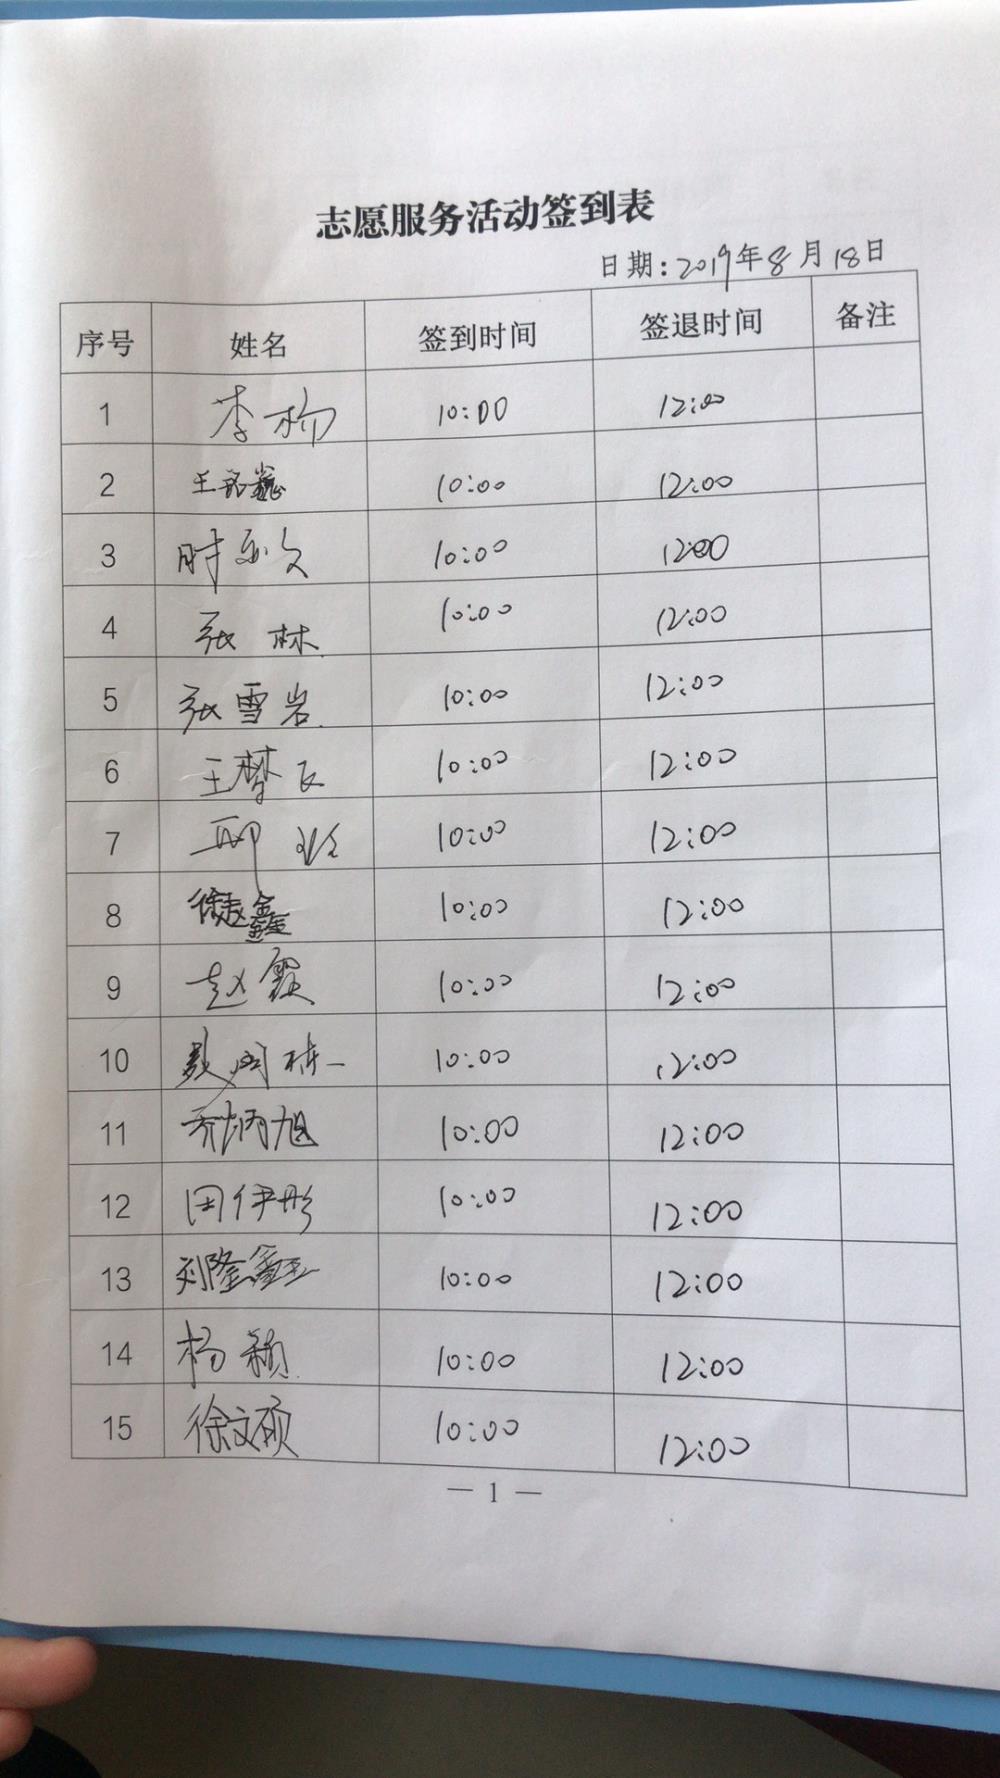 志愿服务活动签到表
日期:2019年8月18日
序号 姓名 签到时间 签退时间 备注
1 李杨 10:00 12:00
2 王 10:00 12:00
3 时 10:00 12:00
4 张林 10:00 12:00
5 张雪岩 10:00 12:00
6 王梦 10:00 12:00
7 邴 10:00 12:00
8 徐赵鑫 10:00 12:00
9 赵霞 10:00 12:00
10 10:00 12:00
11 乔炳旭 10:00 12:00
12 田伊彤 10:00 12:00
13 刘隆鑫 10:00 12:00
14 杨颖 10:00 12:00
15 徐文硕 10:00 12:00
— 1 —